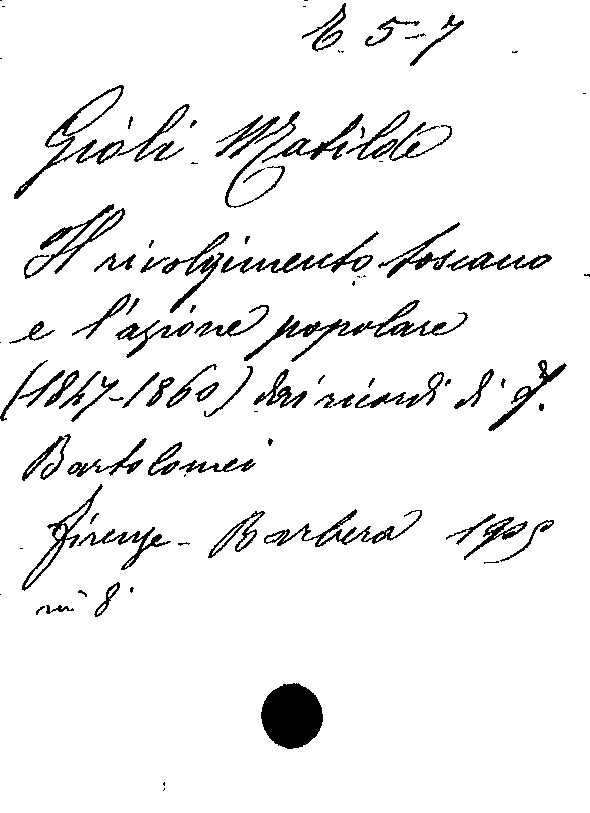 E 5-7
Gioli Matilde
Il rivolgimento toscano
e l'azione popolare
(1847-1860) dai ricordi di
Bartolomei
Firenze - Barbera 1905
in 8°